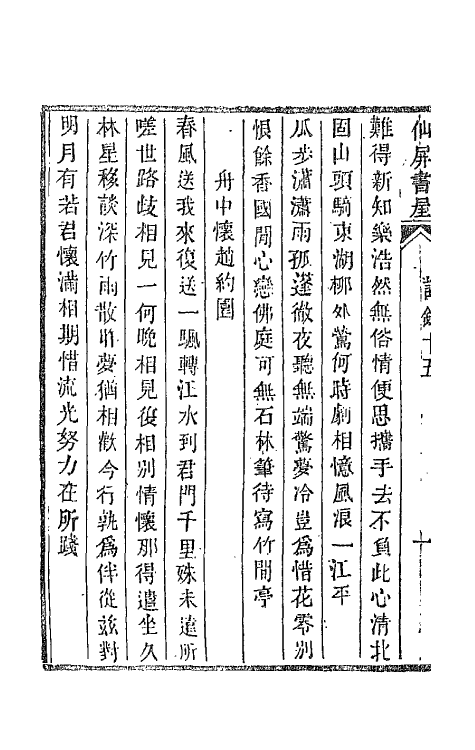 仙屏書屋　詩錄十五　十
難得新知樂浩然無俗情便思攜手去不負此心清北
固山頭騎東湖柳外鶯何時劇相憶風浪一江平
瓜步瀟瀟雨孤蓬徹夜聽無端驚夢冷豈為惜花零別
恨餘香國閒心戀佛庭可無石林筆待寫竹間亭
舟中懷趙約園
春風送我來復送一颿轉江水到君門千里殊未遠所
嗟世路歧相見一何晚相見復相別情懷那得遣坐久
林星移談深竹雨散昨夢猶相歡今行孰為伴從茲對
明月有若君懷滿相期惜流光努力在所踐